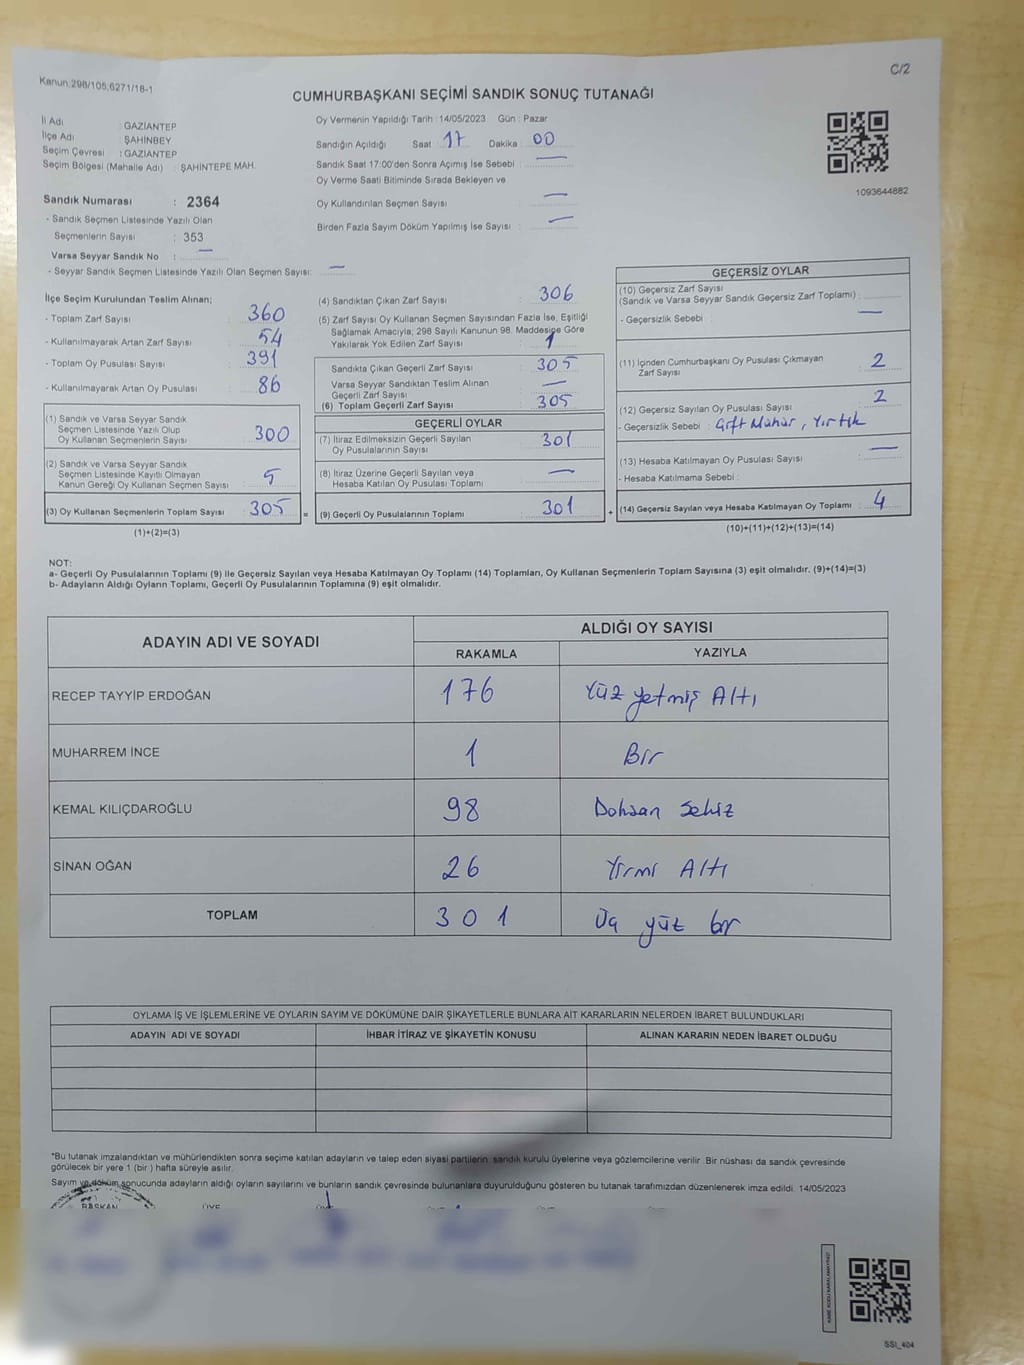 C/2
Kanun:298/105,6271/18-1
CUMHURBAŞKANI SEÇİMİ SANDIK SONUÇ TUTANAĞI
İl Adı : GAZİANTEP
İlçe Adı : ŞAHİNBEY
Seçim Çevresi : GAZİANTEP
Seçim Bölgesi (Mahalle Adı) : ŞAHİNTEPE MAH.
Sandık Numarası : 2364
- Sandık Seçmen Listesinde Yazılı Olan
Seçmenlerin Sayısı : 353
Varsa Seyyar Sandık No : —
- Seyyar Sandık Seçmen Listesinde Yazılı Olan Seçmen Sayısı: —
Oy Vermenin Yapıldığı Tarih : 14/05/2023 Gün : Pazar
Sandığın Açıldığı Saat 17 Dakika 00
Sandık Saat 17:00'den Sonra Açımış İse Sebebi : —
Oy Verme Saati Bitiminde Sırada Bekleyen ve
Oy Kullandırılan Seçmen Sayısı : —
Birden Fazla Sayım Döküm Yapılmış İse Sayısı : —
1093644882
İlçe Seçim Kurulundan Teslim Alınan;
- Toplam Zarf Sayısı : 360
- Kullanılmayarak Artan Zarf Sayısı : 54
- Toplam Oy Pusulası Sayısı : 391
- Kullanılmayarak Artan Oy Pusulası : 86
(1) Sandık ve Varsa Seyyar Sandık
Seçmen Listesinde Yazılı Olup
Oy Kullanan Seçmenlerin Sayısı : 300
(2) Sandık ve Varsa Seyyar Sandık
Seçmen Listesinde Kayıtlı Olmayan
Kanun Gereği Oy Kullanan Seçmen Sayısı : 5
(3) Oy Kullanan Seçmenlerin Toplam Sayısı : 305 =
(1)+(2)=(3)
(4) Sandıktan Çıkan Zarf Sayısı : 306
(5) Zarf Sayısı Oy Kullanan Seçmen Sayısından Fazla İse, Eşitliği
Sağlamak Amacıyla; 298 Sayılı Kanunun 98. Maddesine Göre
Yakılarak Yok Edilen Zarf Sayısı : 1
Sandıkta Çıkan Geçerli Zarf Sayısı : 305
Varsa Seyyar Sandıktan Teslim Alınan
Geçerli Zarf Sayısı : —
(6) Toplam Geçerli Zarf Sayısı : 305
GEÇERLİ OYLAR
(7) İtiraz Edilmeksizin Geçerli Sayılan
Oy Pusulalarının Sayısı : 301
(8) İtiraz Üzerine Geçerli Sayılan veya
Hesaba Katılan Oy Pusulası Toplamı : —
(9) Geçerli Oy Pusulalarının Toplamı : 301 +
GEÇERSİZ OYLAR
(10) Geçersiz Zarf Sayısı
(Sandık ve Varsa Seyyar Sandık Geçersiz Zarf Toplamı) :
- Geçersizlik Sebebi : —
(11) İçinden Cumhurbaşkanı Oy Pusulası Çıkmayan
Zarf Sayısı : 2
(12) Geçersiz Sayılan Oy Pusulası Sayısı : 2
- Geçersizlik Sebebi : Çift Mühür, Yırtık
(13) Hesaba Katılmayan Oy Pusulası Sayısı : —
- Hesaba Katılmama Sebebi :
(14) Geçersiz Sayılan veya Hesaba Katılmayan Oy Toplamı : 4
(10)+(11)+(12)+(13)=(14)
NOT:
a- Geçerli Oy Pusulalarının Toplamı (9) ile Geçersiz Sayılan veya Hesaba Katılmayan Oy Toplamı (14) Toplamları, Oy Kullanan Seçmenlerin Toplam Sayısına (3) eşit olmalıdır. (9)+(14)=(3)
b- Adayların Aldığı Oyların Toplamı, Geçerli Oy Pusulalarının Toplamına (9) eşit olmalıdır.
ADAYIN ADI VE SOYADI ALDIĞI OY SAYISI
RAKAMLA YAZIYLA
RECEP TAYYİP ERDOĞAN 176 Yüz yetmiş Altı
MUHARREM İNCE 1 Bir
KEMAL KILIÇDAROĞLU 98 Doksan Sekiz
SİNAN OĞAN 26 Yirmi Altı
TOPLAM 301 Üç yüz bir
OYLAMA İŞ VE İŞLEMLERİNE VE OYLARIN SAYIM VE DÖKÜMÜNE DAİR ŞİKAYETLERLE BUNLARA AİT KARARLARIN NELERDEN İBARET BULUNDUKLARI
ADAYIN ADI VE SOYADI İHBAR İTİRAZ VE ŞİKAYETİN KONUSU ALINAN KARARIN NEDEN İBARET OLDUĞU
*Bu tutanak imzalandıktan ve mühürlendikten sonra seçime katılan adayların ve talep eden siyasi partilerin sandık kurulu üyelerine veya gözlemcilerine verilir. Bir nüshası da sandık çevresinde
görülecek bir yere 1 (bir) hafta süreyle asılır.
Sayım ve döküm sonucunda adayların aldığı oyların sayılarını ve bunların sandık çevresinde bulunanlara duyurulduğunu gösteren bu tutanak tarafımızdan düzenlenerek imza edildi. 14/05/2023
BAŞKAN ÜYE
SSİ_404